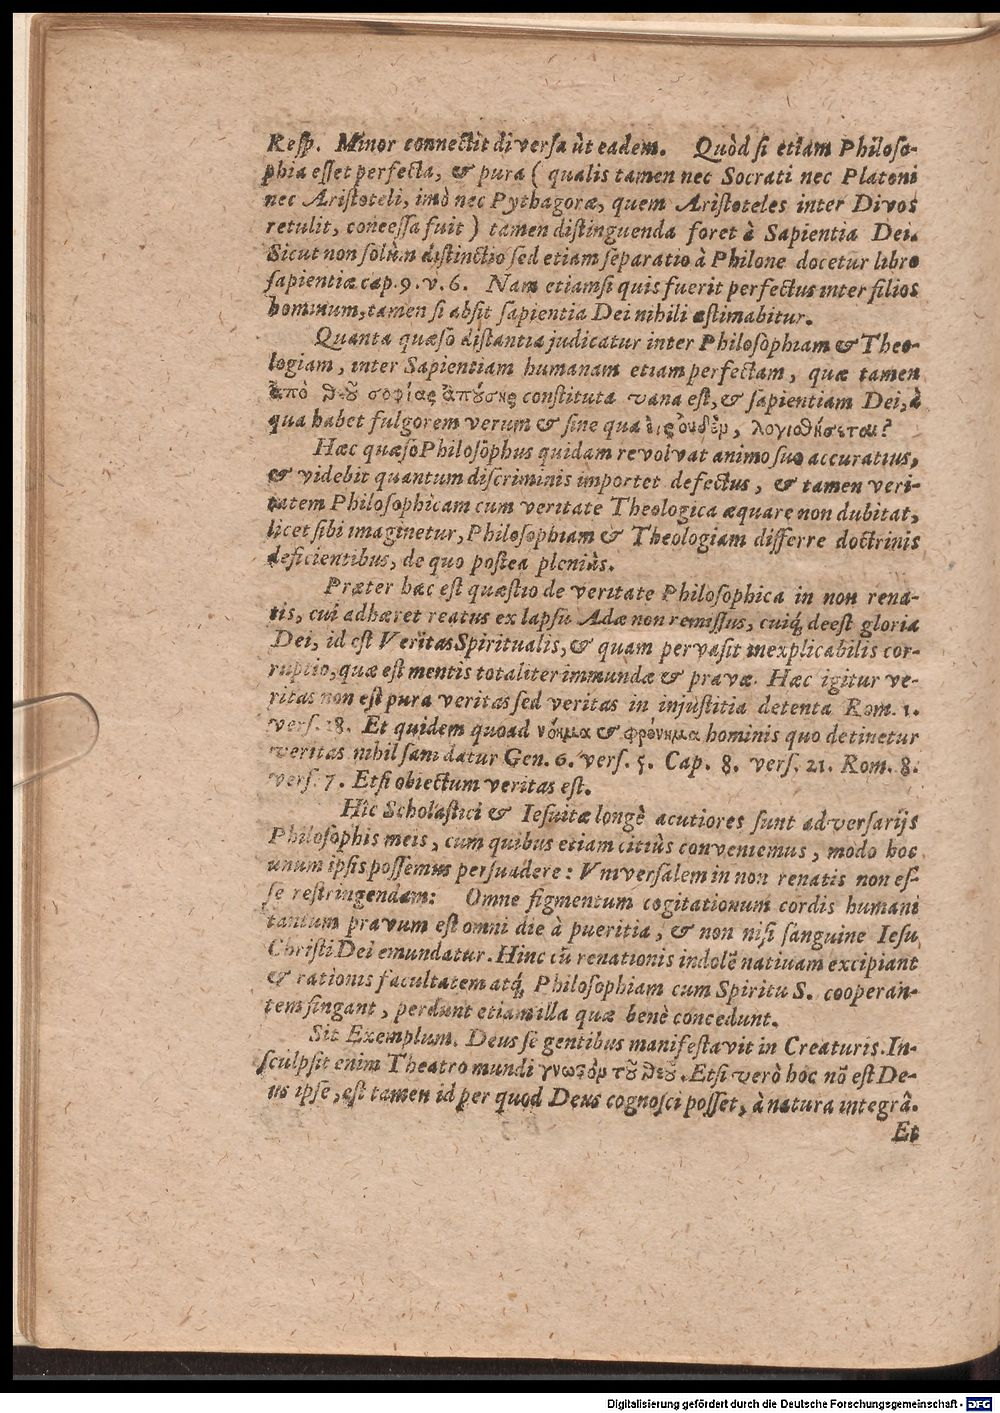 Resp. Minor connectit diversa ùt eadem. Quòd si etiam Philoso-
phia esset perfecta, & pura ( qualis tamen nec Socrati nec Platoni
nec Aristoteli, imò nec Pythagoræ, quem Aristoteles inter Divos
retulit, concessa fuit ) tamen distinguenda foret à Sapientia Dei.
Sicut non solùm distinctio sed etiam separatio à Philone docetur libro
sapientiæ cap. 9. v. 6. Nam etiamsi quis fuerit perfectus inter filios
hominum, tamen si absit sapientia Dei nihili æstimabitur.
Quanta quæso distantia judicatur inter Philosòphiam & Theo-
logiam, inter Sapientiam humanam etiam perfectam, quæ tamen
ἀπὸ θεοῦ σοφίας ἀπούσης constituta vana est, & sapientiam Dei, à
qua habet fulgorem verum & sine qua εἰς οὐδὲν, λογισθήσεται?
Hæc quæso Philosòphus quidam revolvat animo suo accuratius,
& videbit quantum discriminis importet defectus, & tamen veri-
tatem Philosophicam cum veritate Theologica æquare non dubitat,
licet sibi imaginetur, Philosophiam & Theologiam differre doctrinis
deficientibus, de quo postea pleniùs.
Præter hæc est quæstio de veritate Philosophica in non rena-
tis, cui adhæret reatus ex lapsu Adæ non remissus, cuiq́, deest gloria
Dei, id est Veritas Spiritualis, & quam pervasit inexplicabilis cor-
ruptio, quæ est mentis totaliter immundæ & pravæ. Hæc igitur ve-
ritas non est pura veritas sed veritas in injustitia detenta Rom. 1.
vers. 18. Et quidem quoad νόημα & φρόνημα hominis quo detinetur
veritas nihil sani datur Gen. 6. vers. 5. Cap. 8. vers. 21. Rom. 8.
vers. 7. Etsi obiectum veritas est.
Hic Scholastici & Iesuitæ longè acutiores sunt adversarijs
Philosophis meis, cum quibus etiam citiùs conveniemus, modo hoc
unum ipsis possemus persuadere: Vniversalem in non renatis non es-
se restringendam: Omne figmentum cogitationum cordis humani
tantum pravum est omni die à pueritia, & non nisi sanguine Iesu
Christi Dei emundatur. Hinc cū renationis indolē nativam excipiant
& rationis facultatem atq́, Philosophiam cum Spiritu S. cooperan-
tem fingant, perdunt etiam illa quæ benè concedunt.
Sit Exemplum. Deus se gentibus manifestavit in Creaturis. In-
sculpsit enim Theatro mundi γνωστὸν τοῦ θεοῦ. Etsi verò hoc nō est De-
us ipse, est tamen id per quod Deus cognosci posset, à natura integrâ.
Et
Digitalisierung gefördert durch die Deutsche Forschungsgemeinschaft - DFG